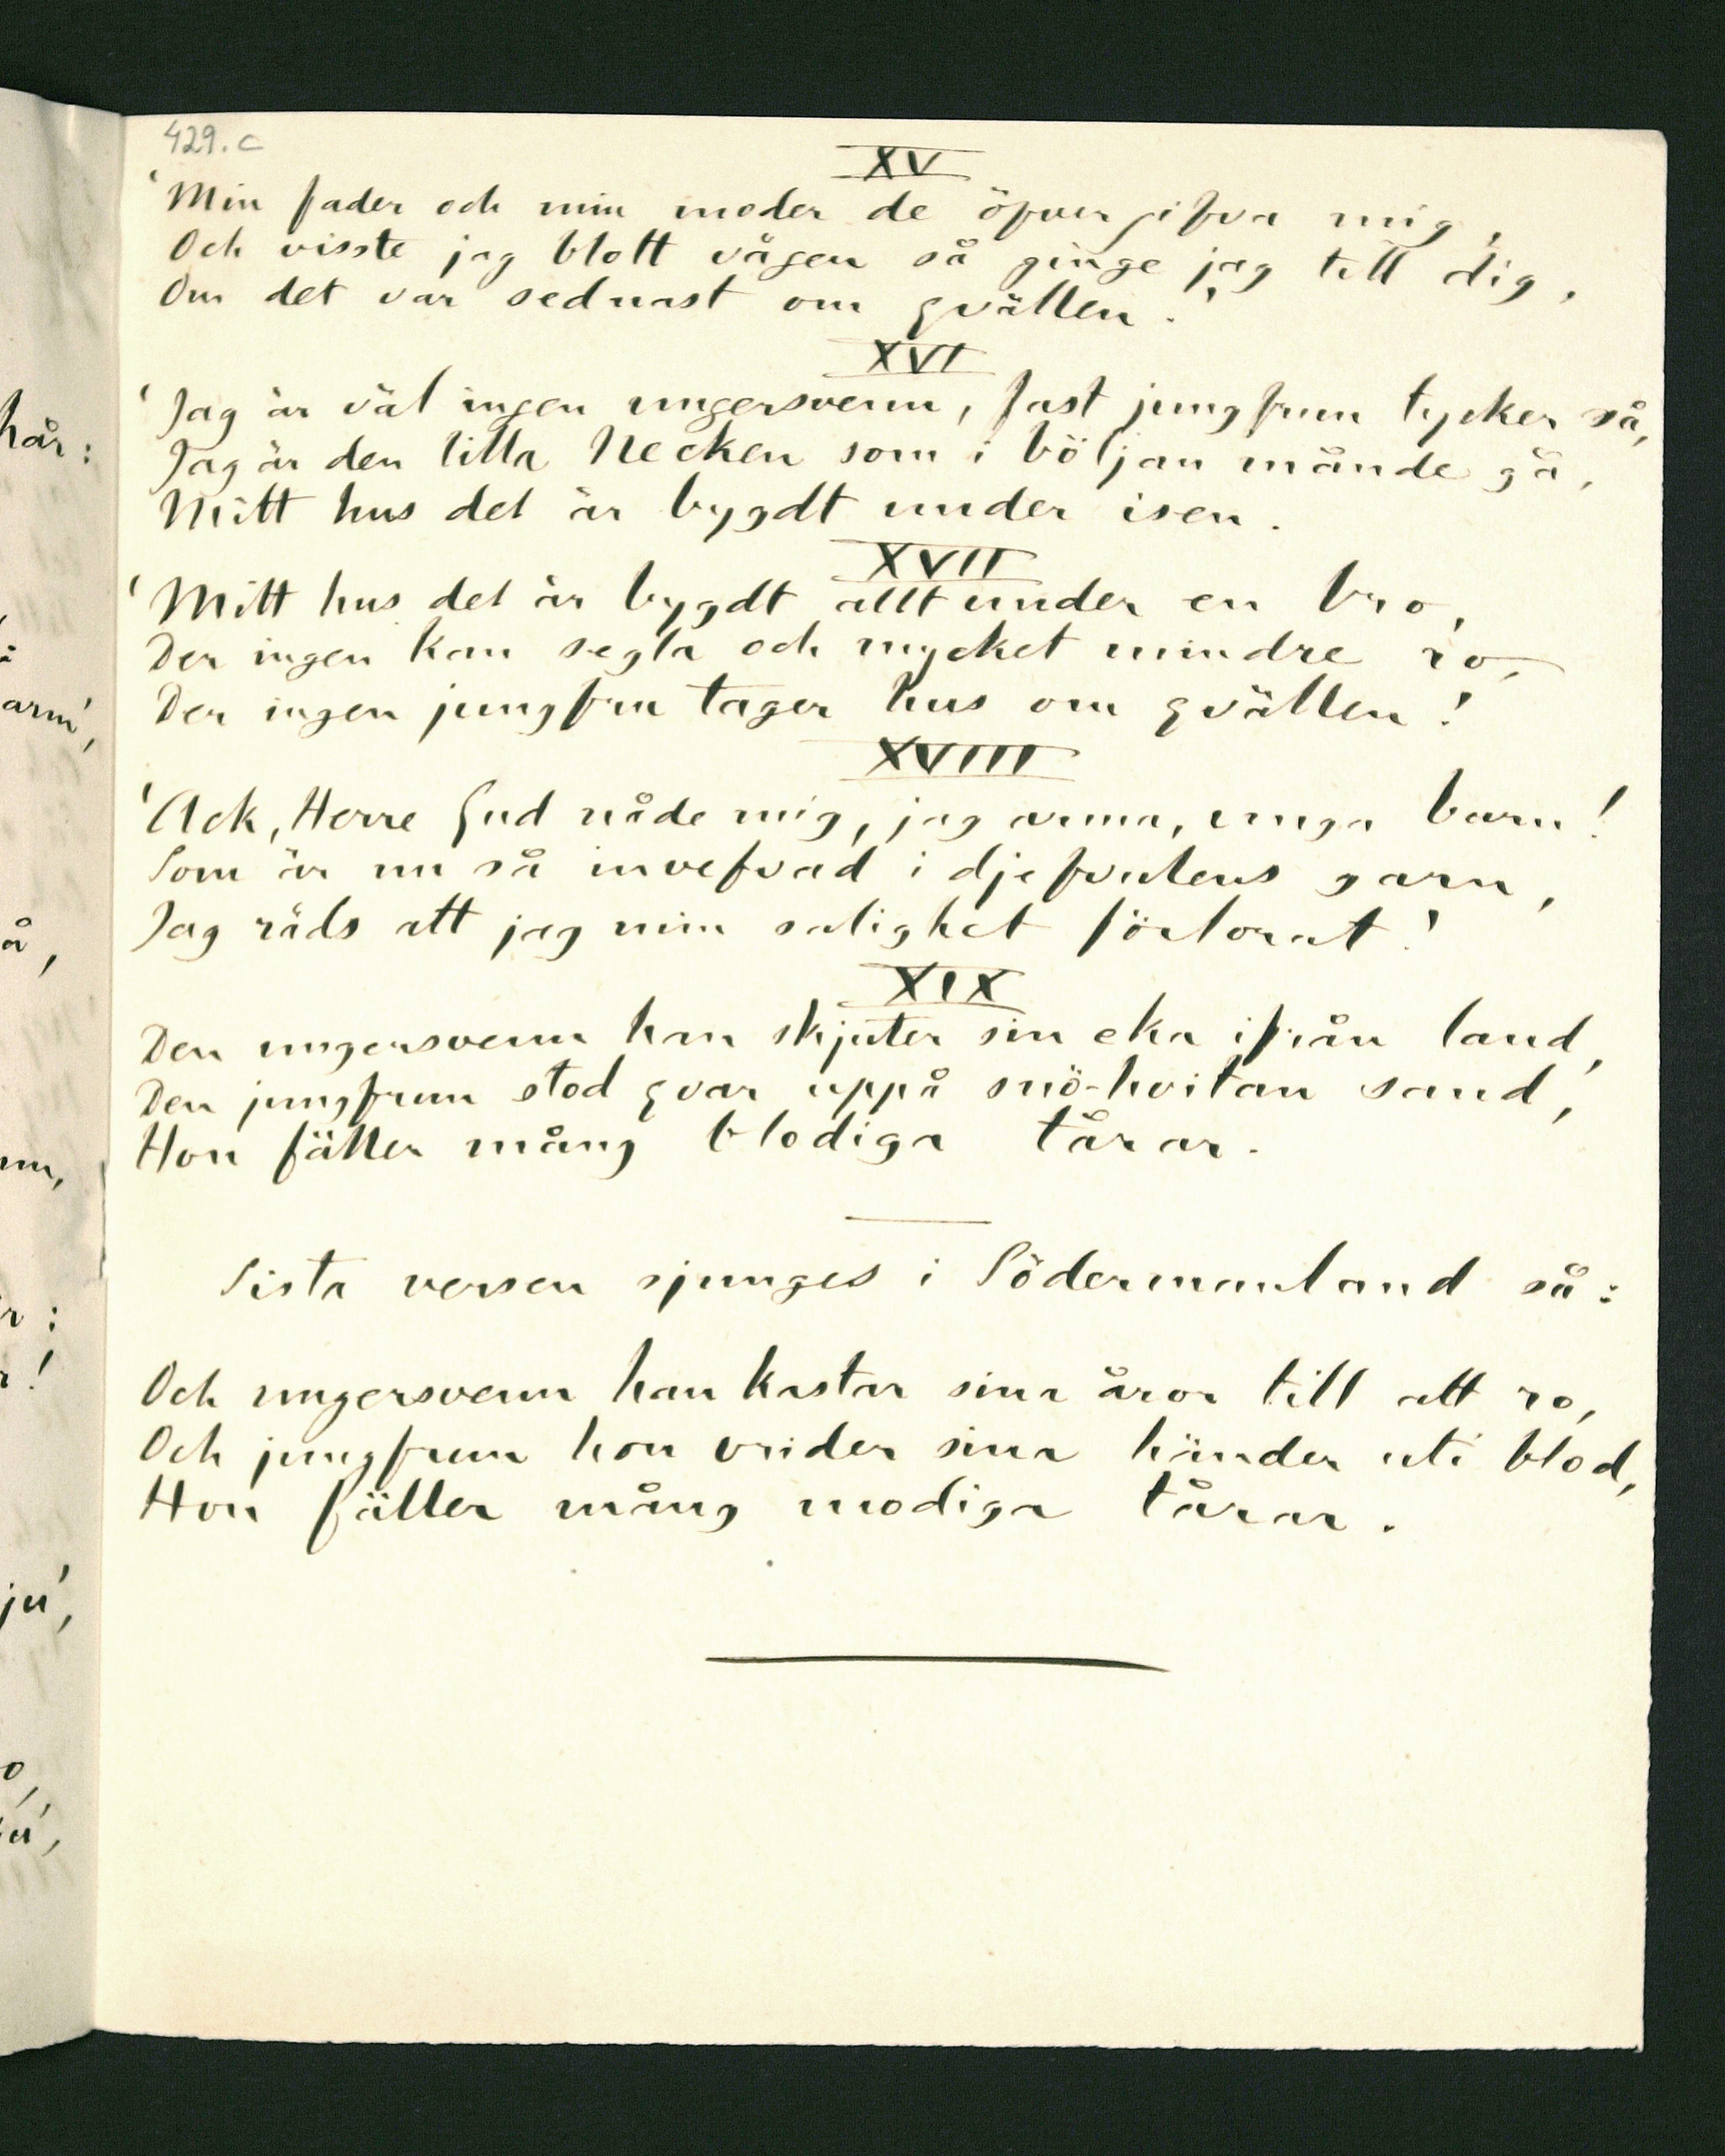 429. c
XV
'Min fader och min moder de öfvergifva mig,
Och visste jag blott vägen så ginge jag till dig,
Om det var sednast om qvällen.'
XVI
'Jag är väl ingen ungersvenn, fast jungfrun tycker så,
Jag är den lilla Necken som i böljan månde gå,
Mitt hus det är bygdt under isen.
XVII
'Mitt hus det är bygdt allt under en bro,
Der ingen kan segla och mycket mindre ro,
Der ingen jungfru tager hus om qvällen!
XVIII
'Ack, Herre Gud nåde mig, jag arma, unga barn!
Som är nu så invefvad i djefvulens garn,
Jag räds att jag min salighet förlorat!'
XIX
Den ungersvenn han skjuter sin eka ifrån land,
Den jungfrun stod qvar uppå snö-hvitan sand,
Hon fäller mång blodiga tårar.
Sista versen sjunges i Södermanland så:
Och ungersvenn han kastar sina åror till att ro,
Och jungfrun hon vrider sina händer uti blod,
Hon fäller mång modiga tårar.
hår:
arm',
å,
nn,
r:
r!
ju',
o,